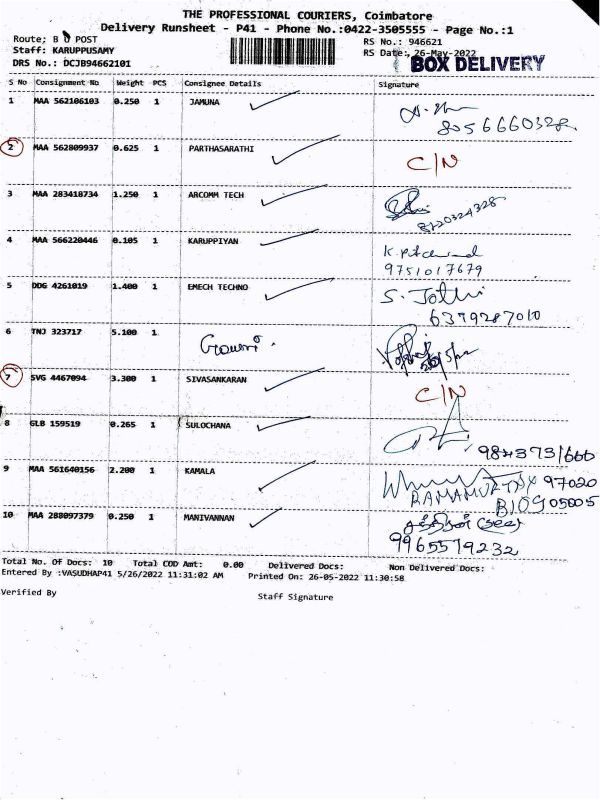 THE PROFESSIONAL COURIERS, Coimbatore
Delivery Runsheet - P41 - Phone No.:0422-3505555 - Page No.:1
Route; B O POST
RS No.: 946621
Staff: KARUPPUSAMY
RS Date: 26-May-2022
DRS No.: DCJB94662101
BOX DELIVERY
S No Consignment No Weight PCS Consignee Details Signature
1 MAA 562106103 0.250 1 JAMUNA
8056660328
2 MAA 562809937 0.625 1 PARTHASARATHI C/N
3 MAA 283418734 1.250 1 ARCOMM TECH
8220324328
4 MAA 566220446 0.105 1 KARUPPIYAN
9751017679
5 DDG 4261019 1.400 1 EMECH TECHNO S. Jothi
6379287010
6 TNJ 323717 5.100 1 Gowri.
7 SVG 4467094 3.300 1 SIVASANKARAN C/N
8 GLB 159519 0.265 1 SULOCHANA
9843731666
9 MAA 561640156 2.200 1 KAMALA
RAMAMURTHY 97020
BIOG 05005
10 MAA 288097379 0.250 1 MANIVANNAN
9965579232
Total No. Of Docs: 10 Total COD Amt: 0.00 Delivered Docs: Non Delivered Docs:
Entered By :VASUDHAP41 5/26/2022 11:31:02 AM Printed On: 26-05-2022 11:30:58
Verified By
Staff Signature